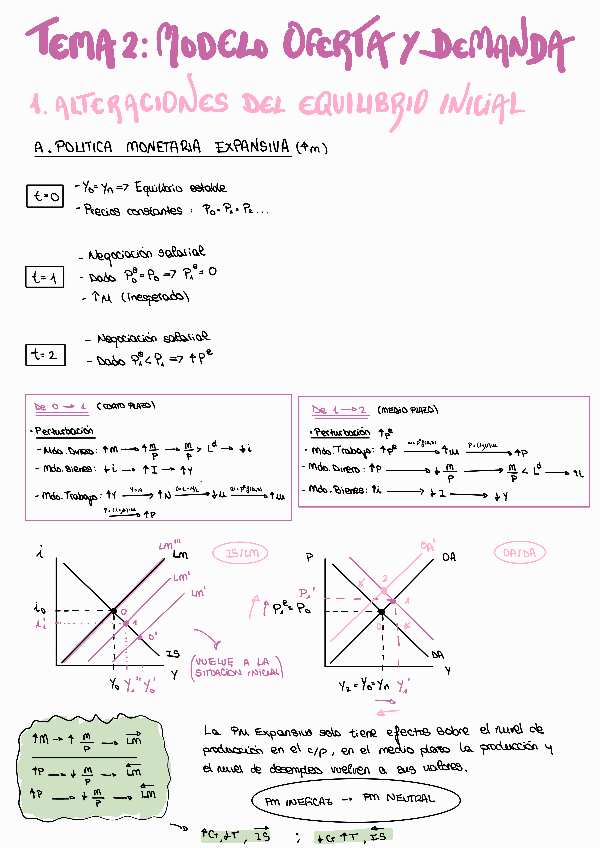 TEMA 2: MODELO OFERTA Y DEMANDA
1. ALTERACIONES DEL EQUILIBRIO INICIAL
A. POLITICA MONETARIA EXPANSIVA (↑m)
t=0
- Y₀=Yn => Equilibrio estable
- Precios constantes : P₀=P₁=P₂...
t=1
- Negociación salarial
- Dado P₀ᵉ=P₀ => P₁ᵉ=0
- ↑M (inesperado)
t=2
- Negociación salarial
- Dado P₁ᵉ<P₁ => ↑Pᵉ
De 0 → 1 (CORTO PLAZO)
· Perturbación
- Mdo. Dinero: ↑M → ↑M/P → M/P > Lᵈ → ↓i
- Mdo. Bienes: ↓i → ↑I → ↑Y
- Mdo. Trabajo: ↑Y → ↑N → ↓u → ↑W
→ ↑P
De 1 → 2 (MEDIO PLAZO)
· Perturbación ↑Pᵉ
- Mdo. Trabajo: ↑Pᵉ → ↑W → ↑P
- Mdo. Dinero: ↑P → ↓ M/P → M/P < Lᵈ → ↑i
- Mdo. Bienes: ↑i → ↓I → ↓Y
i
LM'''
LM
LM''
LM'
IS/LM
i₀
i₁
0
1
0'
IS
Y
Y₀ Y₁'' Y₀'
(VUELVE A LA
SITUACIÓN INICIAL)
P
OA'
OA
OA/DA
2
P₁'
1
↑ P₁ᵉ=P₀
DA'
DA
Y
Y₂=Y₀=Yn Y₁'
↑M → ↑ M/P → LM
↑P → ↓ M/P → LM
↑P → ↓ M/P → LM
La PM Expansiva solo tiene efectos sobre el nivel de
producción en el c/p, en el medio plazo la producción y
el nivel de desempleo vuelven a sus valores.
PM INEFICAZ → PM NEUTRAL
↑G, ↓T, IS ; ↓G ↑T, IS